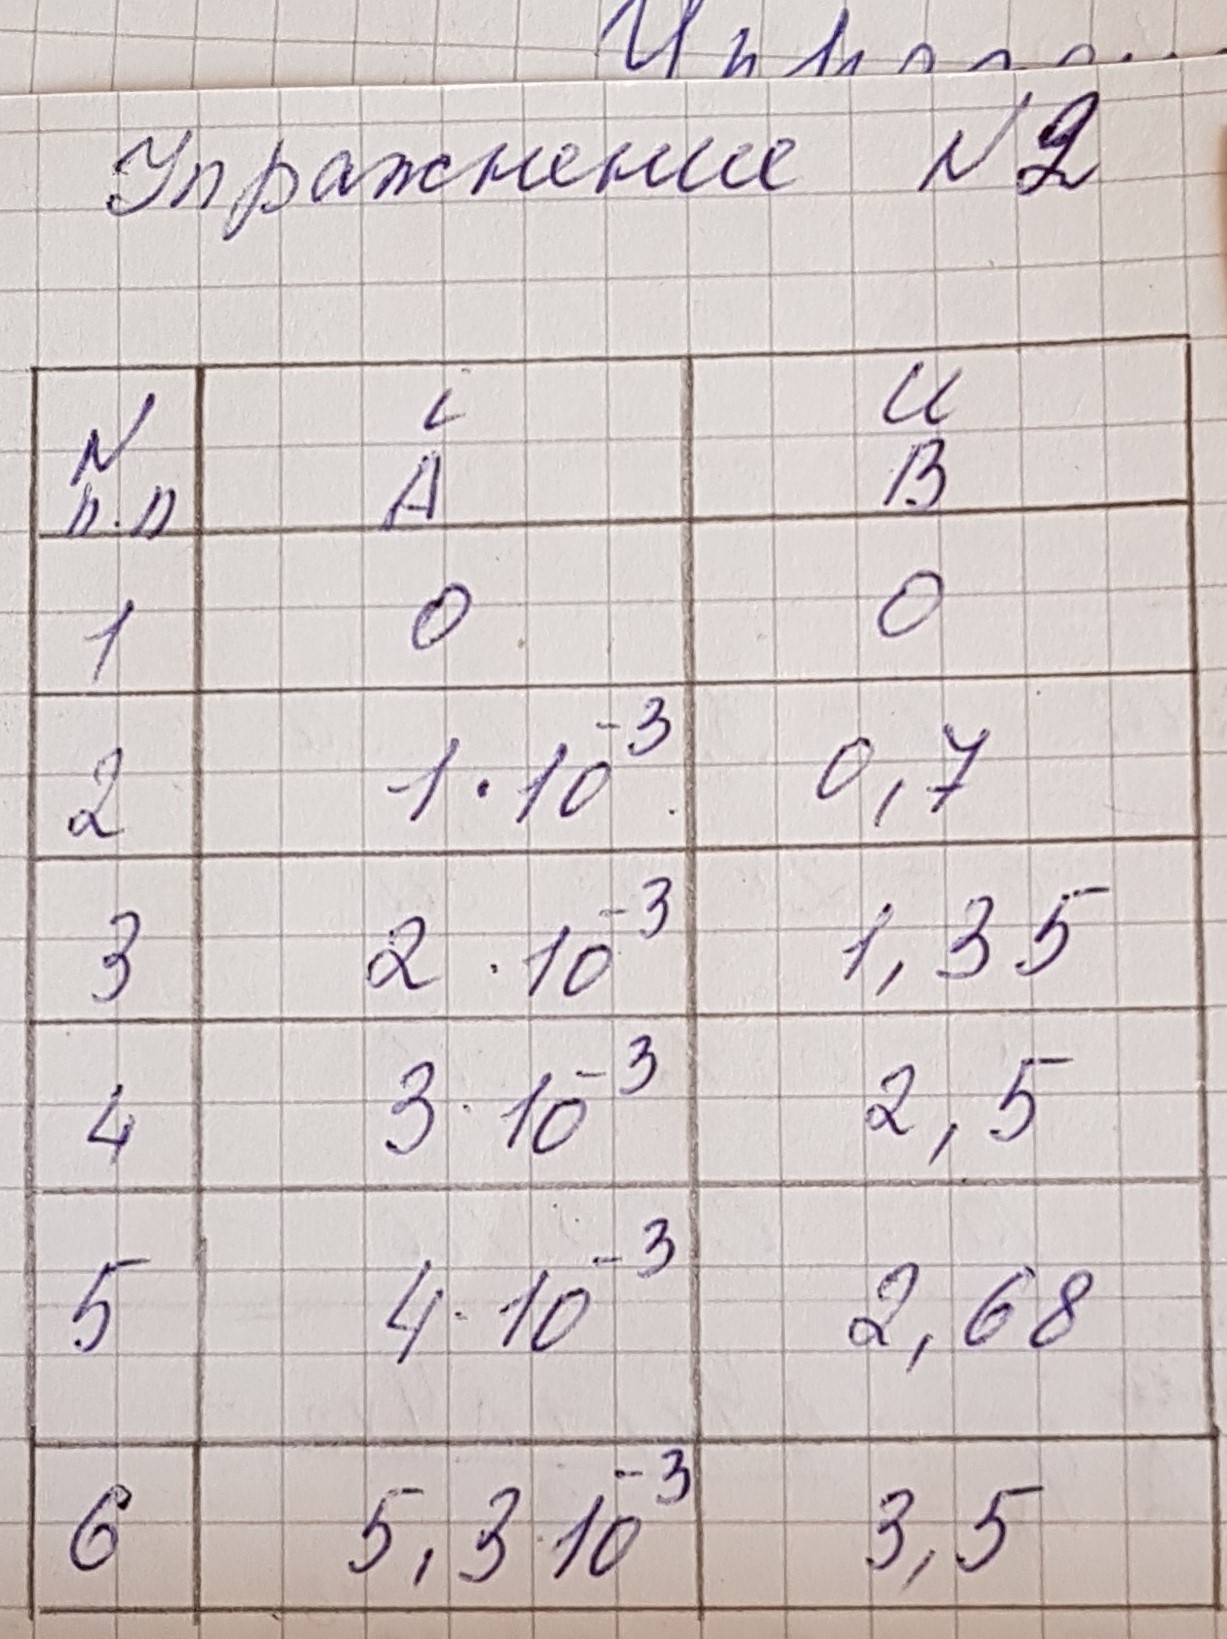 Упражнение N2
N п.п i А U В
1 0 0
2 1·10⁻³ 0,7
3 2·10⁻³ 1,35
4 3·10⁻³ 2,5
5 4·10⁻³ 2,68
6 5,3·10⁻³ 3,5